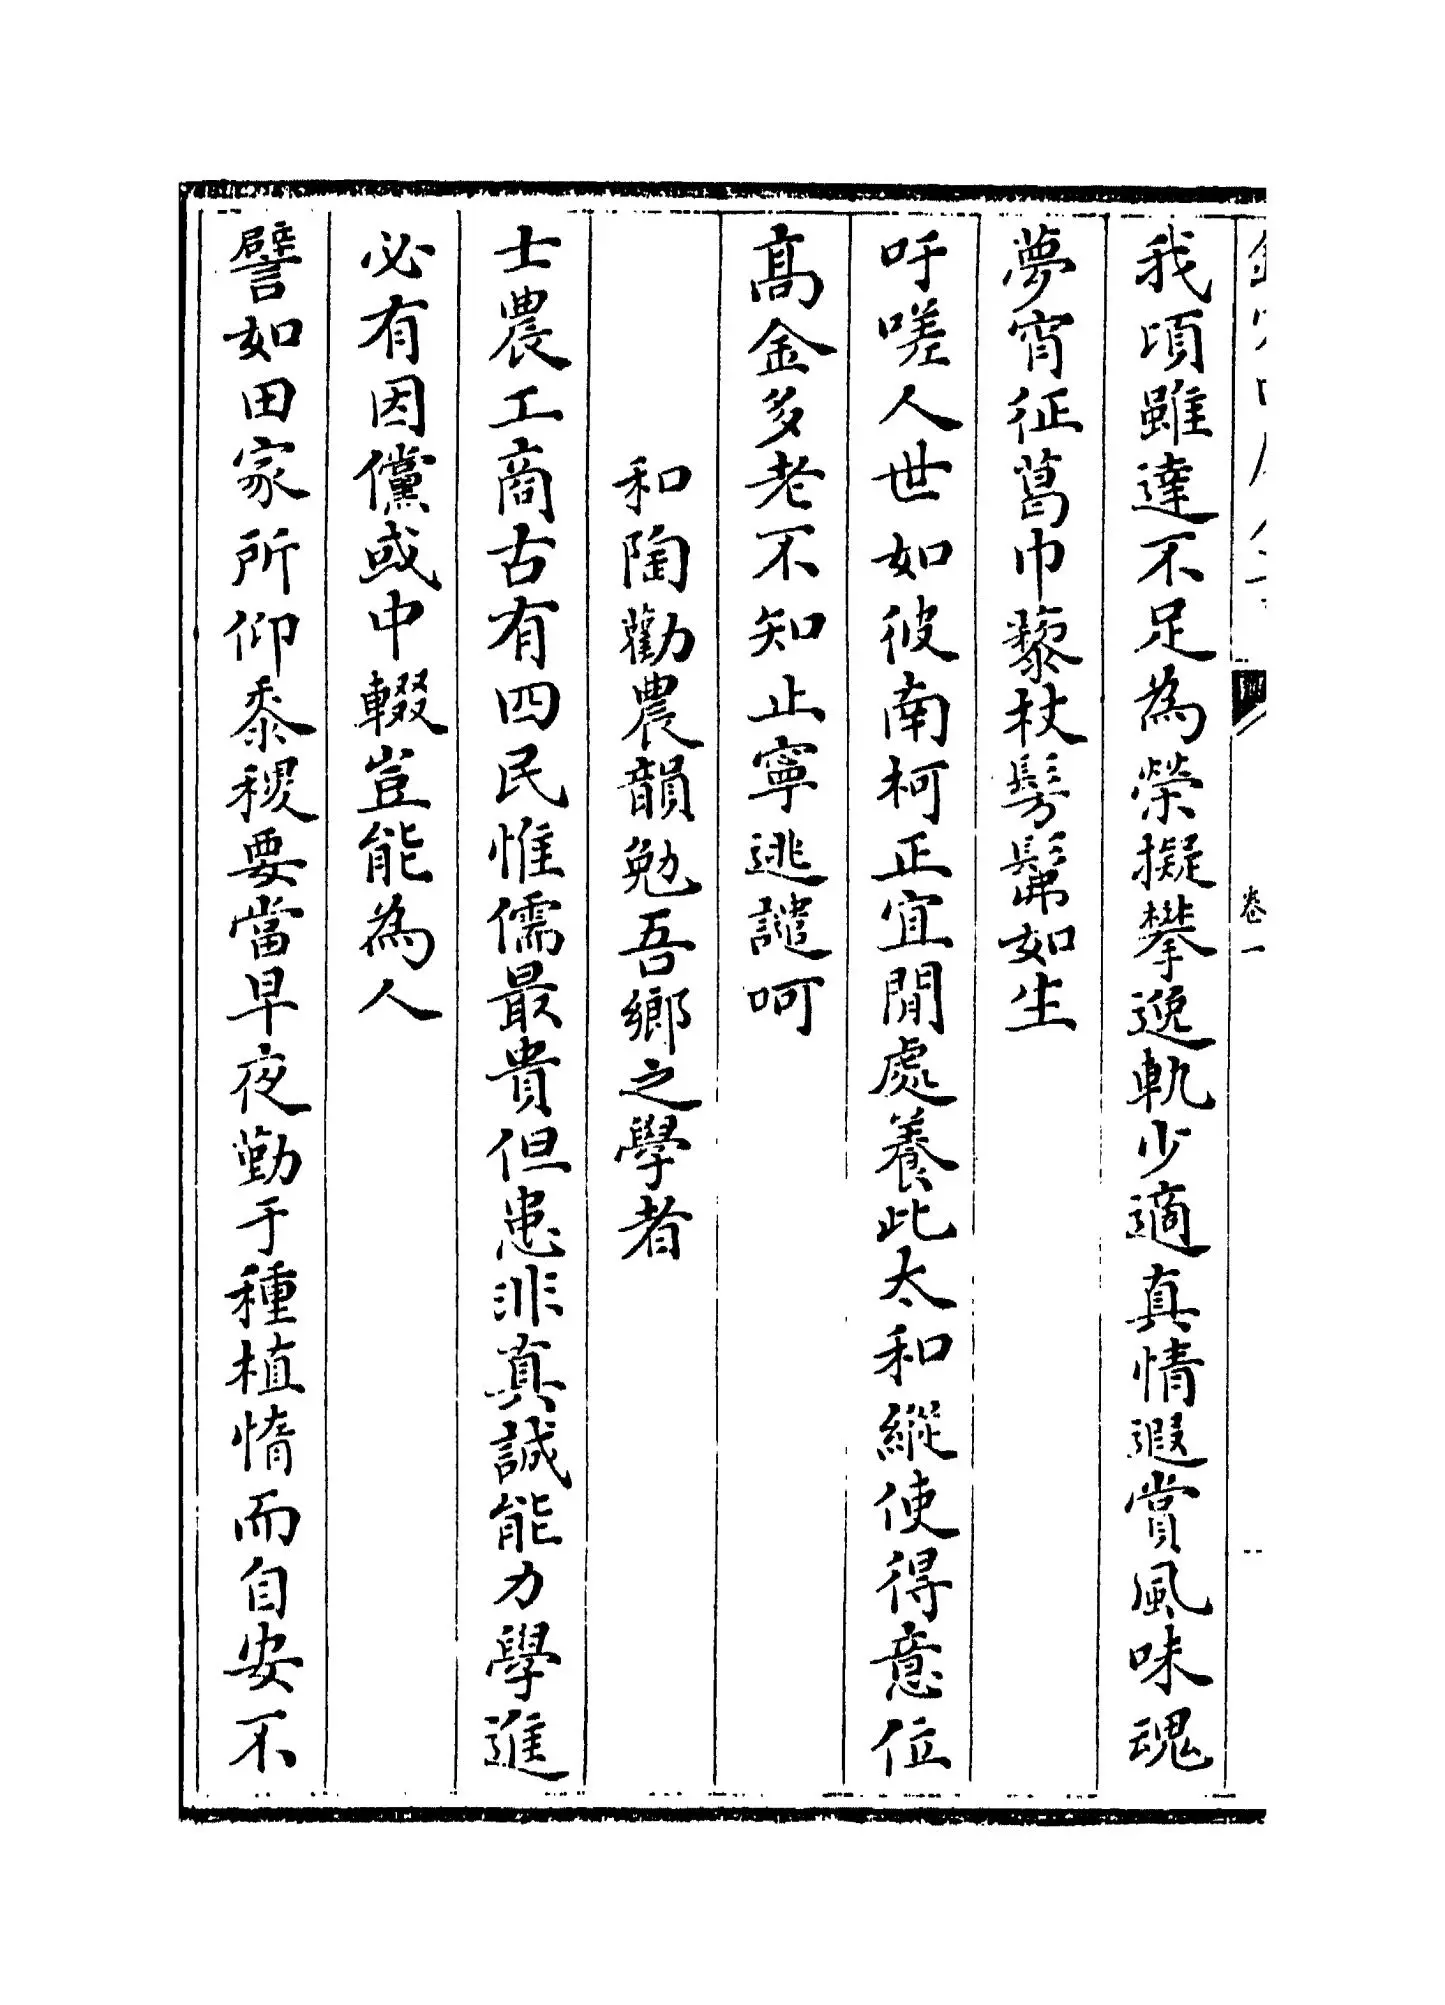 我頃雖達不足為榮擬攀逸軌少適真情遐賞風味魂
夢宵征葛巾藜杖髣髴如生
吁嗟人世如彼南柯正宜閒處養此太和縱使得意位
髙金多老不知止寧逃譴呵
和陶勸農韻勉吾鄉之學者
士農工商古有四民惟儒最貴但患非真誠能力學進
必有因儻或中輟豈能為人
譬如田家所仰黍稷要當早夜勤于種植惰而自安不
卷一